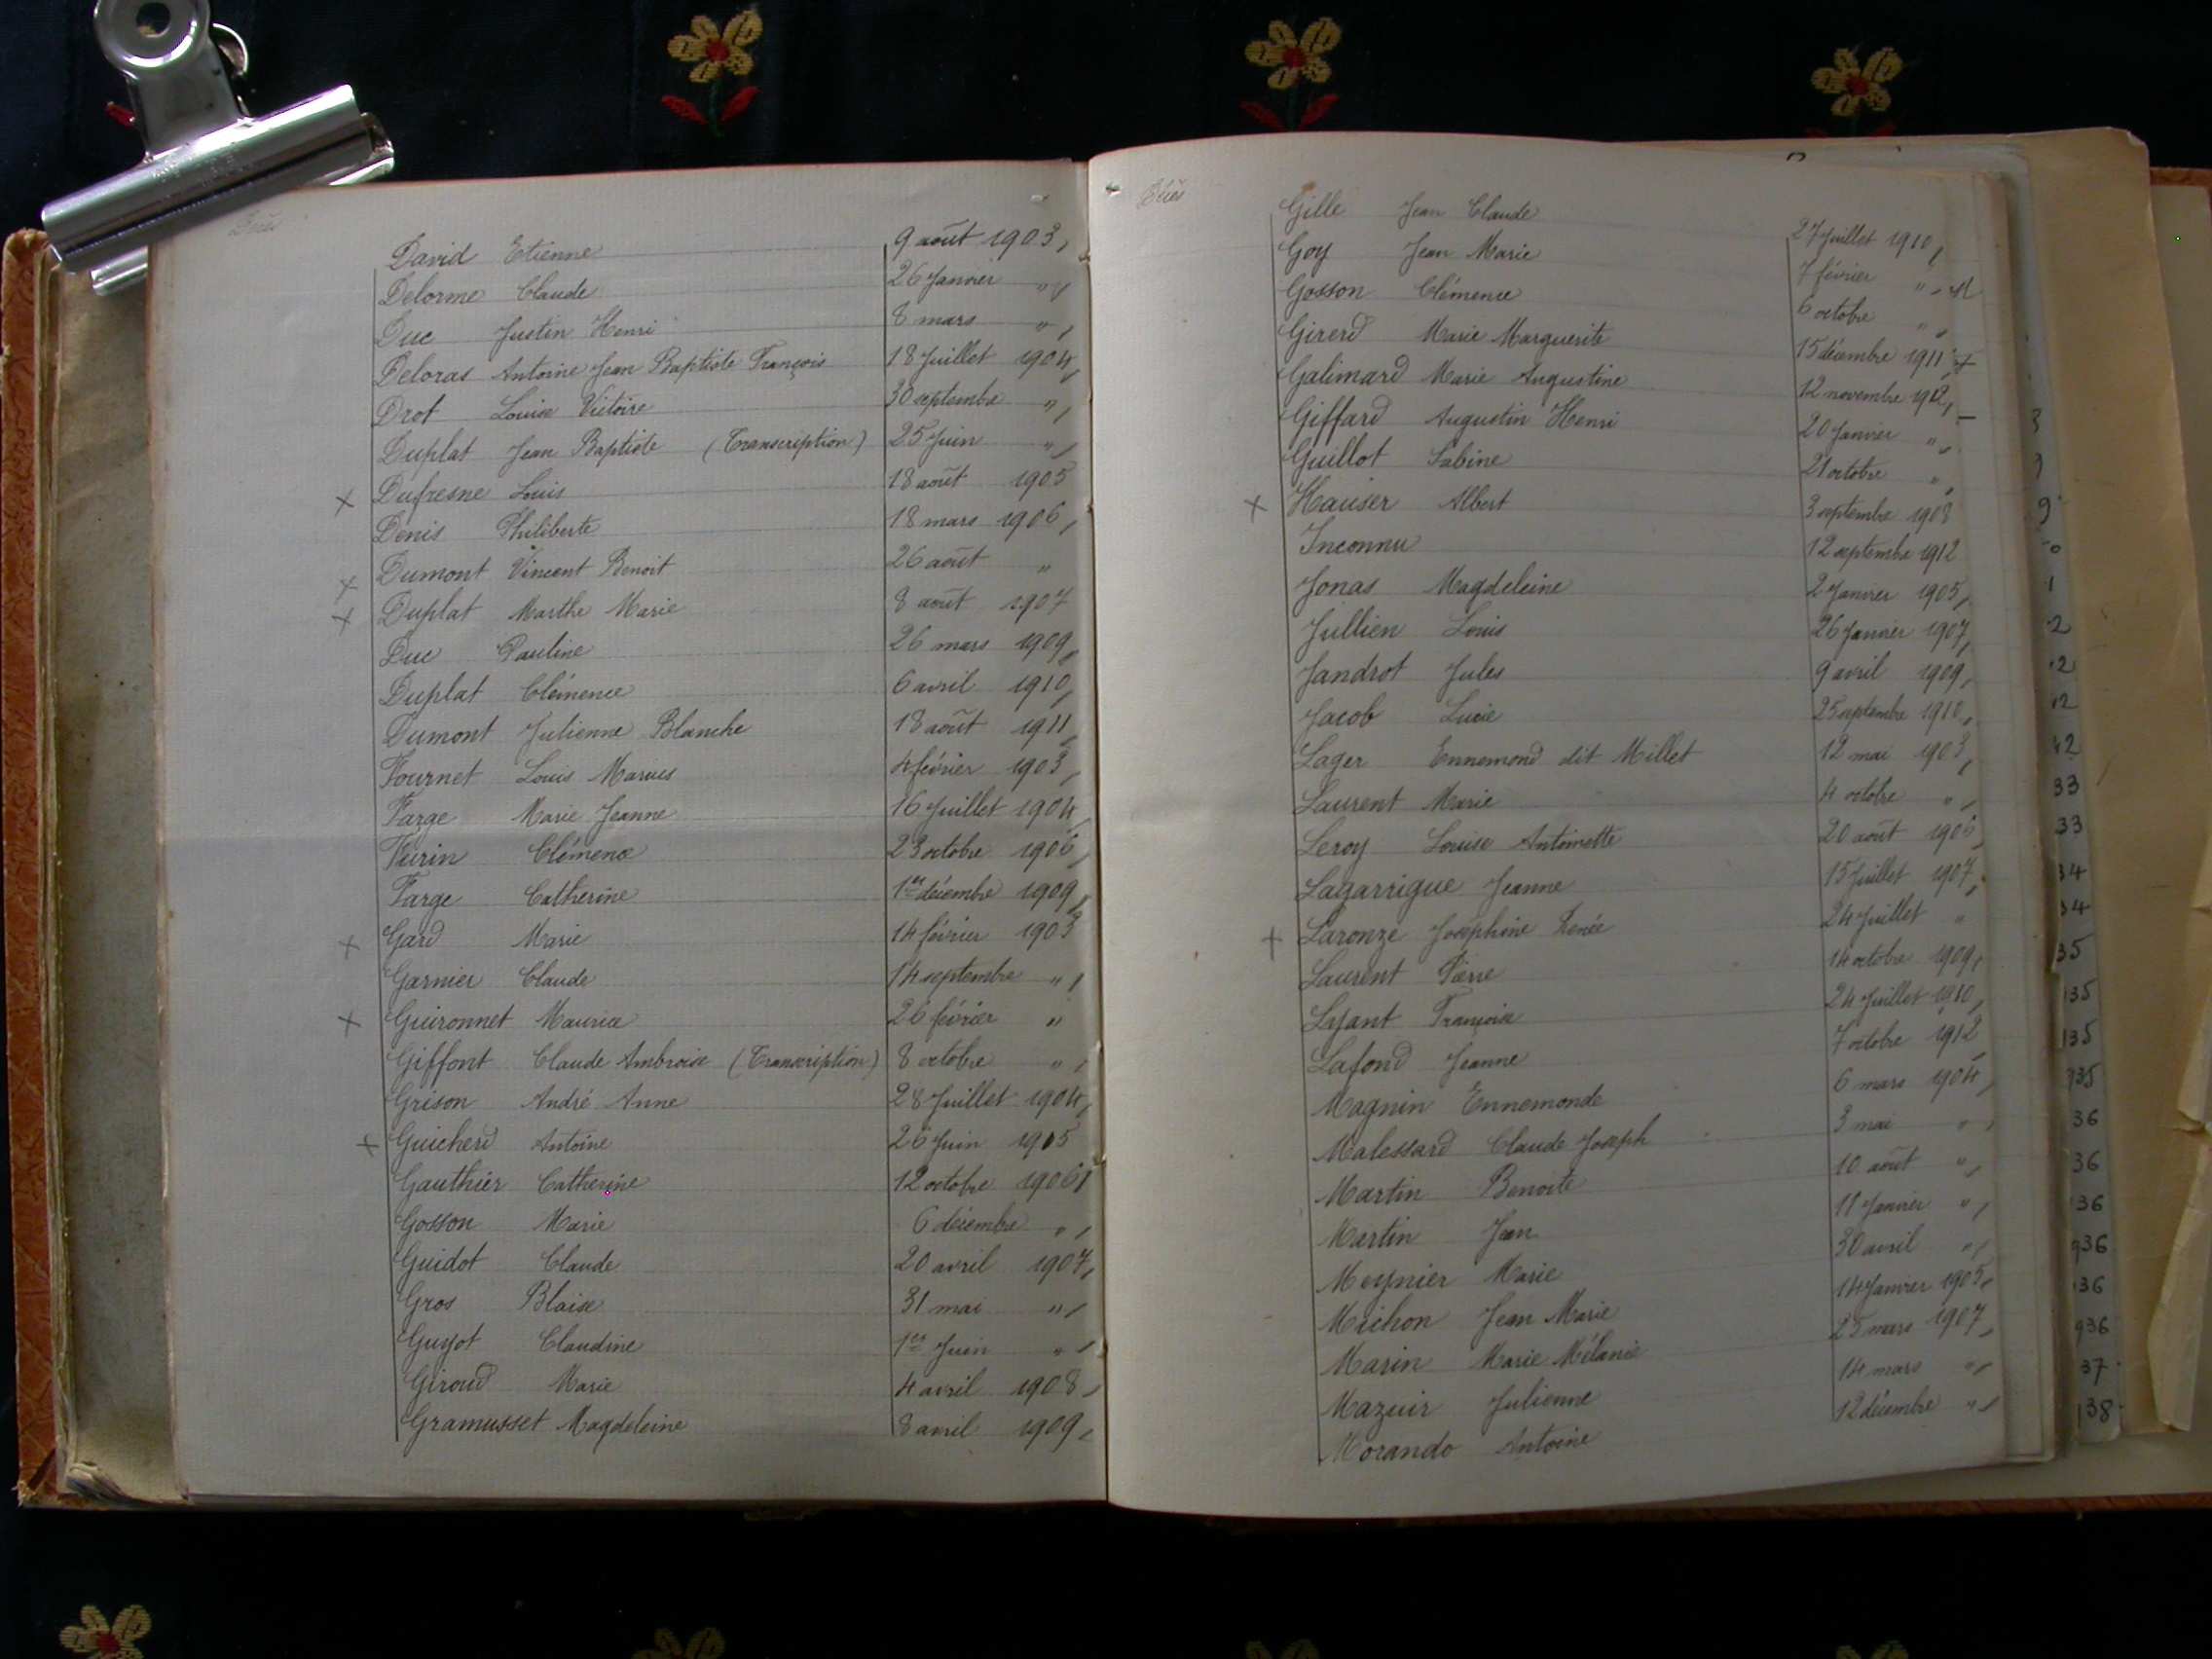 Décès
David Etienne 9 août 1903
Delorme Claude 26 Janvier "
Duc Justin Henri 8 mars "
Deloras Antoine Jean Baptiste François 18 Juillet 1904
Drot Louise Victoire 30 septembre "
Duplat Jean Baptiste (Transcription) 25 Juin "
x Dufresne Louis 18 août 1905
Denis Philiberte 18 mars 1906
x Dumont Vincent Benoit 26 août "
x Duplat Marthe Marie 8 août 1907
Duc Pauline 26 mars 1909
Duplat Clémence 6 avril 1910
Dumont Julienne Blanche 18 août 1911
Fournet Louis Marius 4 février 1903
Farge Marie Jeanne 16 Juillet 1904
Clémence 23 octobre 1906
Farge Catherine 1er décembre 1909
x Gard Marie 14 février 1903
Garnier Claude 14 septembre "
x Guironnet Maurice 26 février "
Giffont Claude Ambroise (Transcription) 8 octobre "
Grison André Anne 28 Juillet 1904
x Guicherd Antoine 26 Juin 1905
Gauthier Catherine 12 octobre 1906
Gosson Marie 6 décembre "
Guidot Claude 20 avril 1907
Gros Blaise 31 mai "
Guyot Claudine 1er Juin "
Giroud Marie 4 avril 1908
Gramusset Magdeleine 8 avril 1909
Décès
Gille Jean Claude 27 Juillet 1910
Goy Jean Marie 7 février "
Gosson Clémence 6 octobre "
Girerd Marie Marguerite 15 décembre 1911
Galimard Marie Augustine 12 novembre 1912
Giffard Augustin Henri 20 Janvier "
Guillot Sabine 21 octobre "
x Hauser Albert 3 septembre 1908
Inconnu 12 septembre 1912
Jonas Magdeleine 2 Janvier 1905
Jullien Louis 26 Janvier 1907
Jandrot Jules 9 avril 1909
Jacob Lucie 25 septembre 1910
Lager Ennemond dit Millet 12 mai 1903
Laurent Marie 4 octobre "
Leroy Louise Antoinette 20 août 1906
Lagarrigue Jeanne 15 Juillet 1907
+ Laronze Joséphine Renée 24 Juillet "
Laurent Pierre 14 octobre 1909
Françoise 24 Juillet 1910
Lafond Jeanne 7 octobre 1912
Magnin Ennemonde 6 mars 1904
Malessard Claude Joseph 3 mai "
Martin Benoite 10 août "
Martin Jean 11 Janvier "
Meynier Marie 30 avril "
Michon Jean Marie 14 Janvier 1905
Marin Marie Mélanie 25 mars 1907
Mazuir Julienne 14 mars "
Morando Antoine 12 décembre "